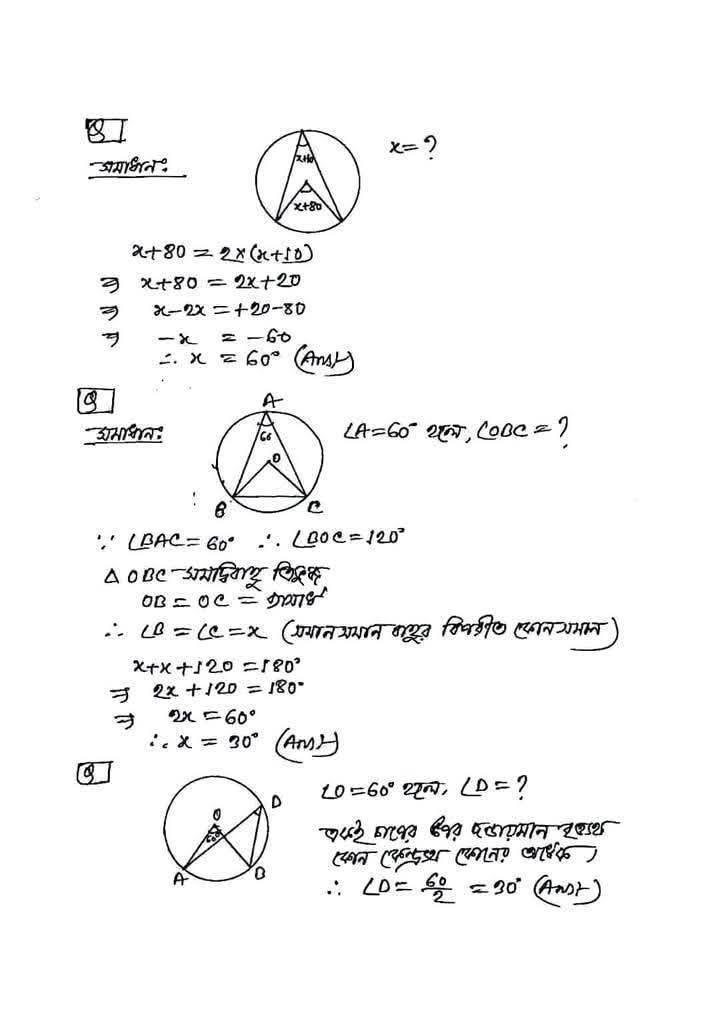 Q
সমাধান:
x+10
x+80
x = ?
x+80 = 2×(x+10)
⇒ x+80 = 2x+20
⇒ x-2x = +20-80
⇒ -x = -60
∴ x = 60° (Ans)
Q
সমাধান:
A
60
O
B
C
∠A=60° হলে, ∠OBC = ?
∵ ∠BAC = 60° ∴ ∠BOC = 120°
Δ OBC সমদ্বিবাহু ত্রিভুজ
OB = OC = ব্যাসার্ধ
∴ ∠B = ∠C = x (সমান সমান বাহুর বিপরীত কোন সমান)
x+x+120 = 180°
⇒ 2x+120 = 180°
⇒ 2x = 60°
∴ x = 30° (Ans)
Q
O
60°
D
A
B
∠O=60° হলে, ∠D = ?
একই চাপের উপর দন্ডায়মান বৃত্তস্থ
কোন কেন্দ্রস্থ কোনের অর্ধেক।
∴ ∠D = 60/2 = 30° (Ans)